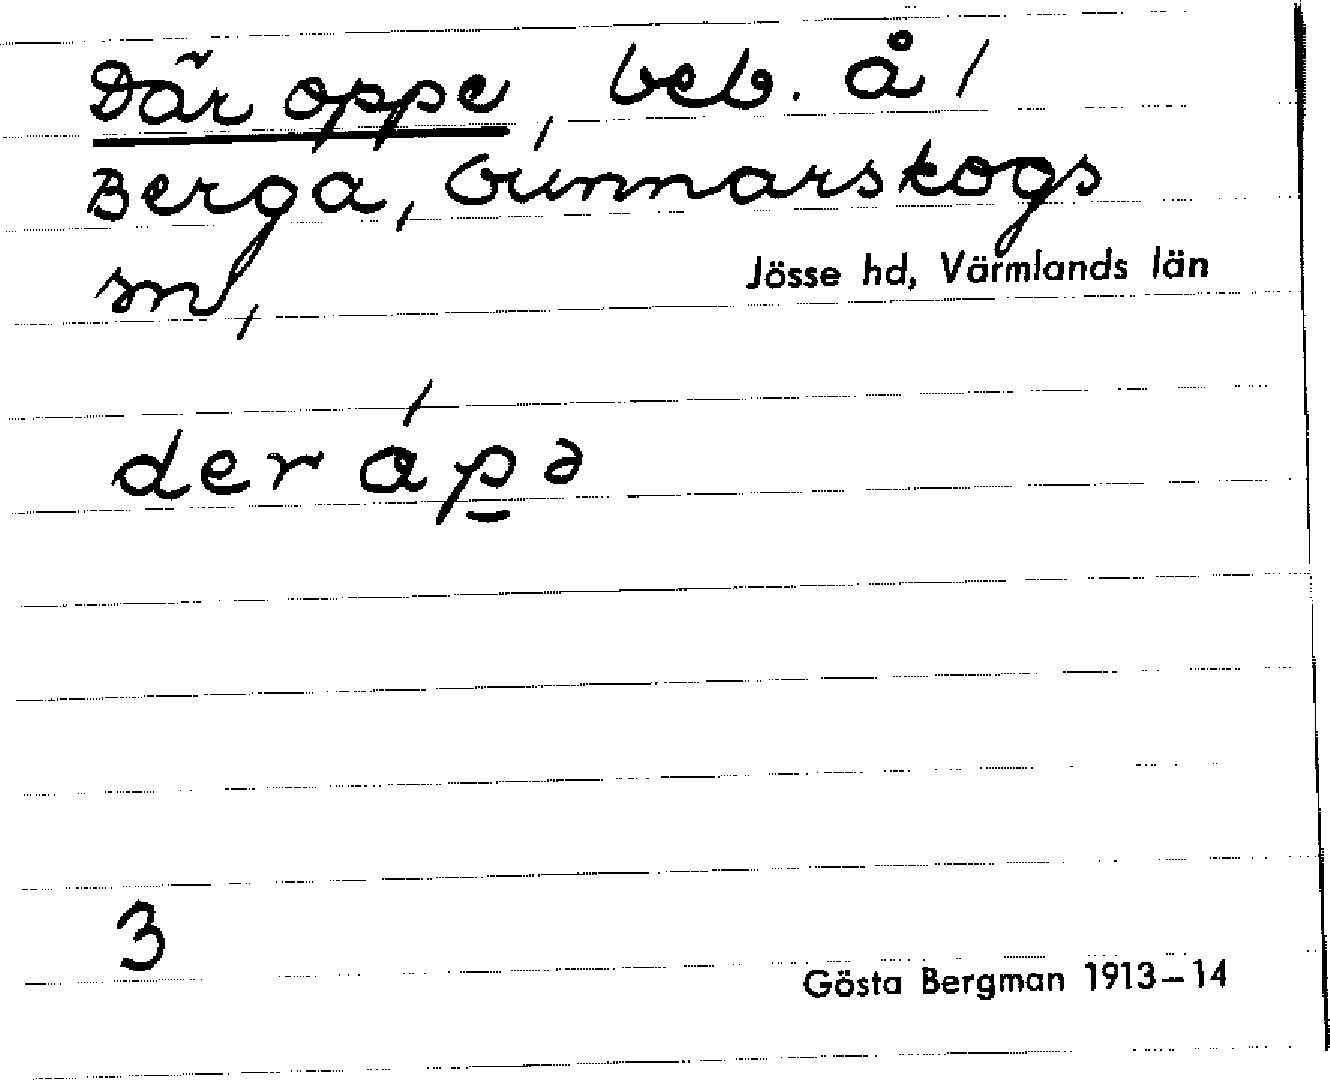 Där oppe, beb. å /
Berga, Gunnarskogs
sn,
Jösse hd, Värmlands län
der ápə
3
Gösta Bergman 1913–14